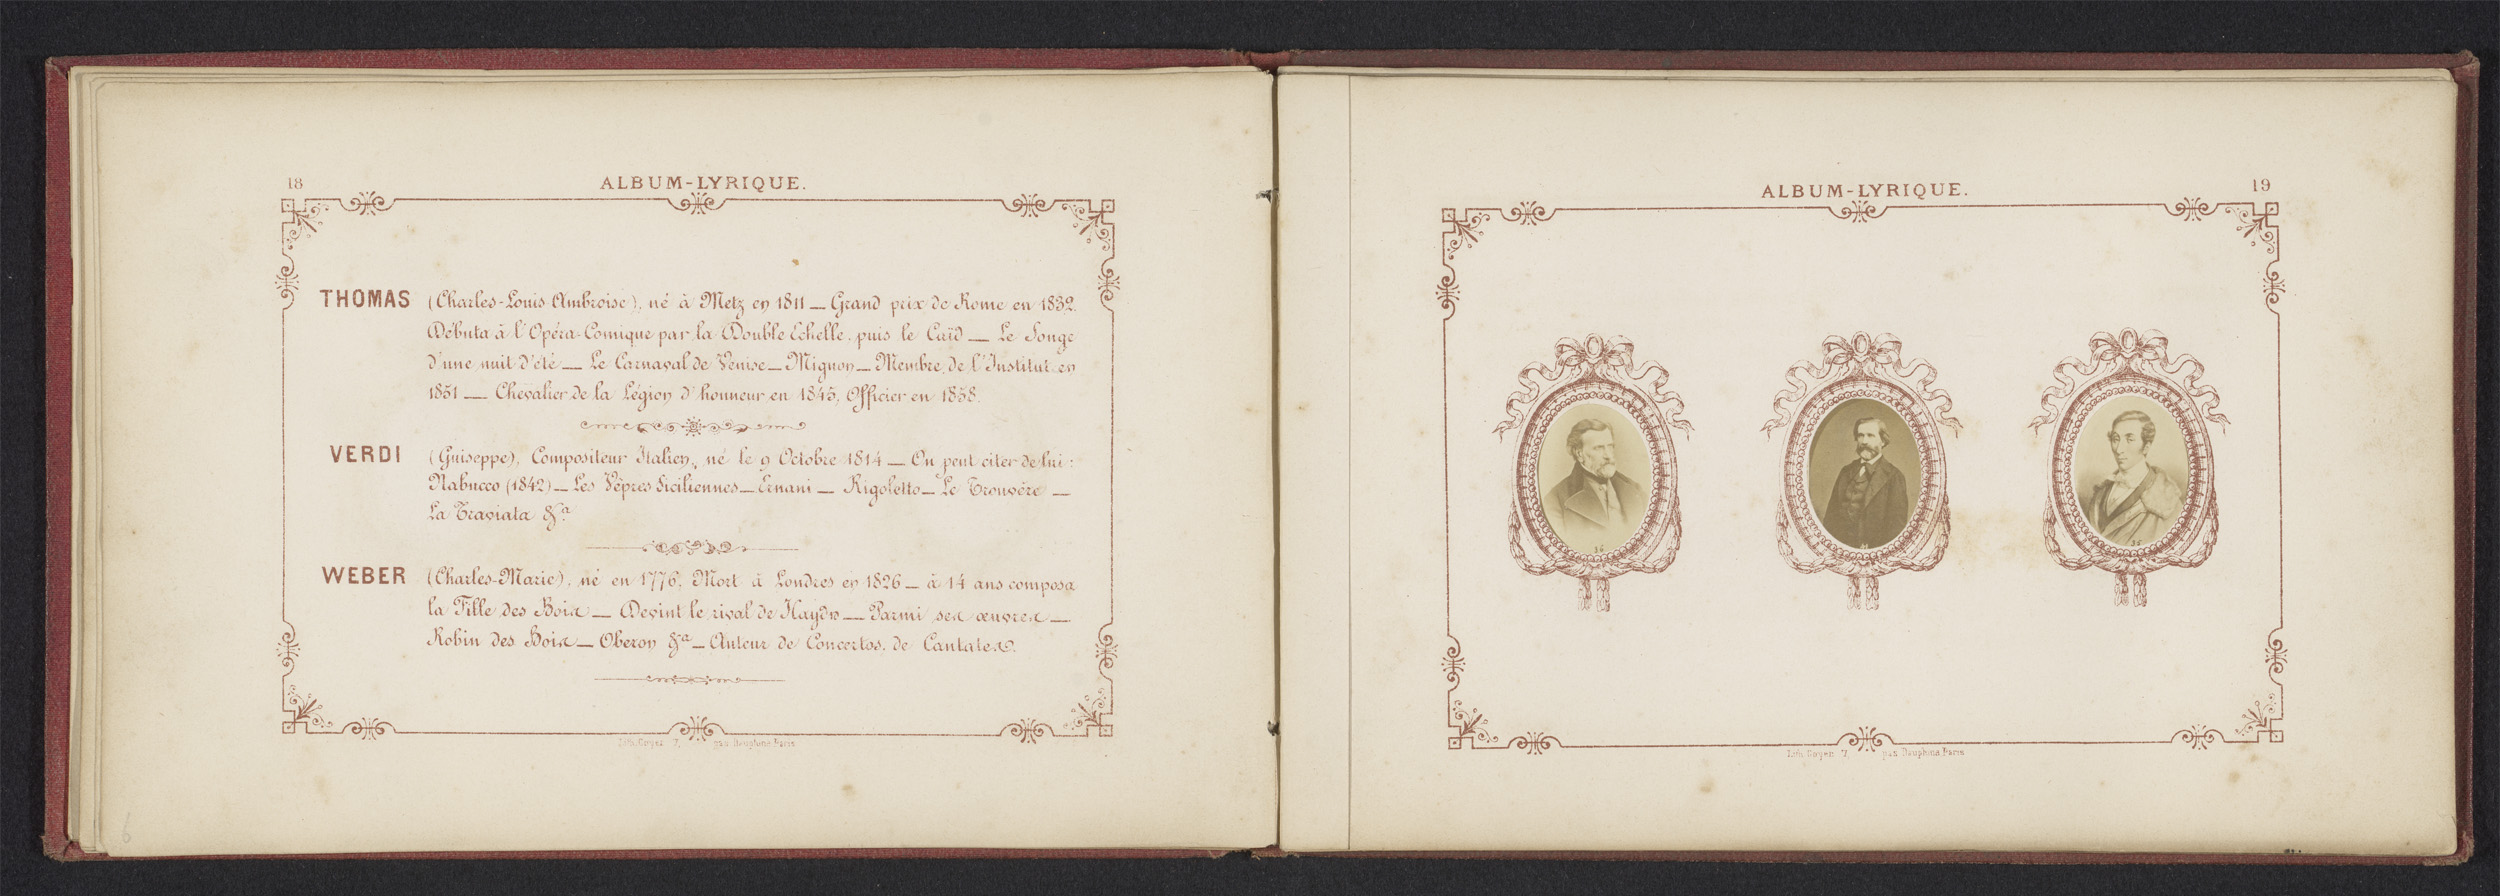 18
ALBUM-LYRIQUE.
THOMAS (Charles-Louis-Ambroise), né à Metz en 1811 — Grand prix de Rome en 1832.
Débuta à l'Opéra-Comique par la Double Echelle, puis le Caïd — Le Songe
d'une nuit d'été — Le Carnaval de Venise — Mignon — Membre de l'Institut en
1851 — Chevalier de la Légion d'honneur en 1845, Officier en 1858.
VERDI (Guiseppe), Compositeur Italien, né le 9 Octobre 1814 — On peut citer de lui:
Nabucco (1842) — Les Vêpres Siciliennes — Ernani — Rigoletto — Le Trouvère —
La Traviata &a
WEBER (Charles-Marie), né en 1776. Mort à Londres en 1826 — à 14 ans composa
la Fille des Bois — Devint le rival de Haydn — Parmi ses œuvres —
Robin des Bois — Oberon &a — Auteur de Concertos, de Cantates.
Lith. Goyer 7, pas. Dauphine Paris
6
ALBUM-LYRIQUE.
19
36
35
Lith. Goyer 7, pas. Dauphine Paris